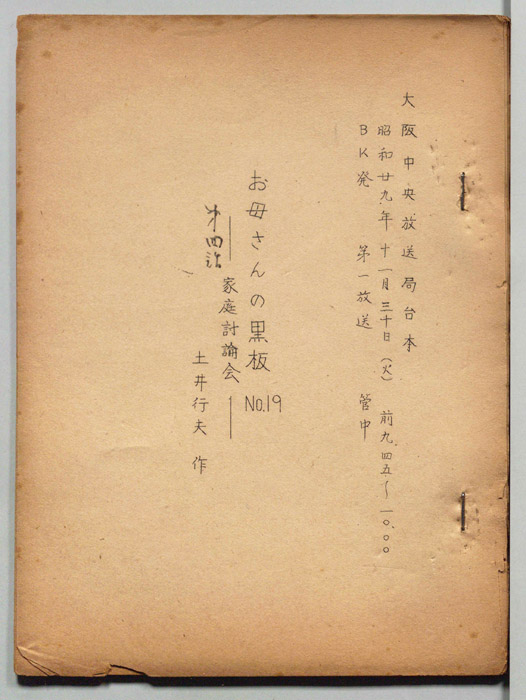 大阪中央放送局台本
昭和廿九年十一月三十日(火) 前九.四五~一〇.〇〇
BK発 第一放送 管中
お母さんの黒板 No.19
家庭討論会
第四話
土井行夫 作